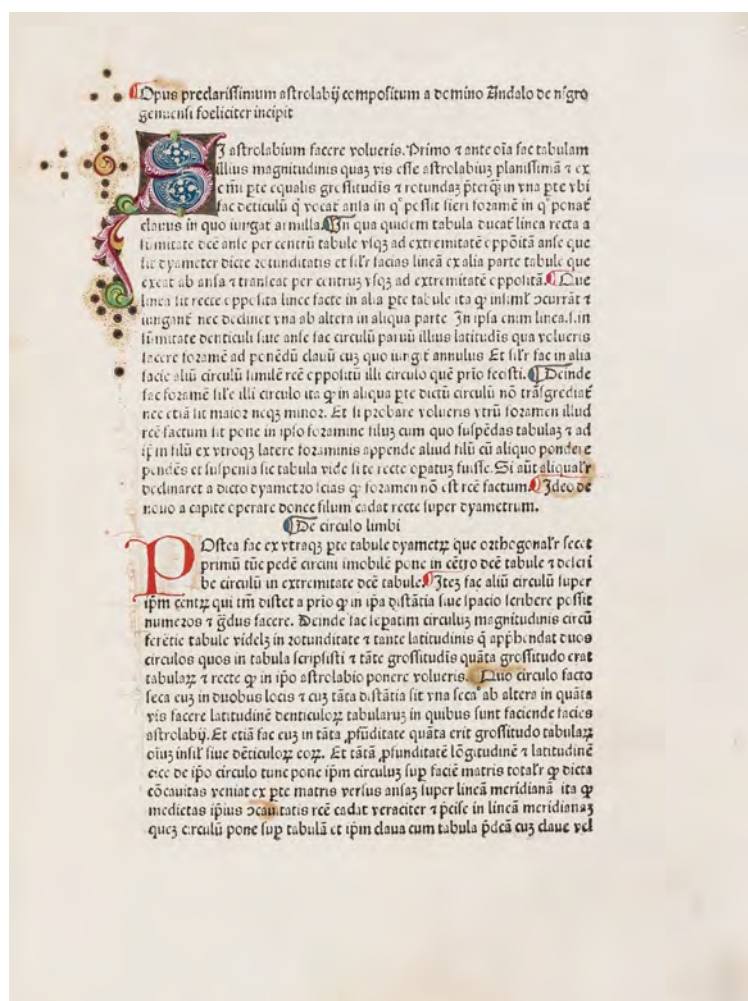 Opus preclarissimum astrolabij compositum a domino Andalo de nigro
genuensi foeliciter incipit
SI astrolabium facere volueris. Primo ⁊ ante oĩa fac tabulam
illius magnitudinis quaꝫ vis esse astrolabiuꝫ planissimã ⁊ ex
omi pte equalis grossitudĩs ⁊ rotundaꝫ pterq̃ in vna pte vbi
fac dẽticulũ q̃ vocat̃ ansa in qº possit fieri foramẽ in qº ponat̃
clauus in quo iungat̃ armilla. In qua quidem tabula ducat̃ linea recta a
sũmitate dcẽ anse per centrũ tabule vsqꝫ ad extremitatẽ oppõitã anse que
sit dyameter dicte rotunditatis et sil'r facias lineã ex alia parte tabule que
exeat ab ansa ⁊ transeat per centruꝫ vsqꝫ ad extremitatẽ oppositã. Que
linea sit recte opposita linee facte in alia pte tabule ita ꝙ insimĺ ↄcurrãt ⁊
iungant̃ nec declinet vna ab altera in aliqua parte In ipsa enim linea.s.in
sũmitate denticuli siue anse fac circulũ paruũ illius latitudĩs qua volueris
facere foramẽ ad ponẽdũ clauũ cuꝫ quo iungit̃ annulus Et sil'r fac in alia
facie aliũ circulũ similẽ rcẽ oppositũ illi circulo quẽ prĩo fecisti. Deinde
fac foramẽ sil'e illi circulo ita ꝙ in aliqua pte dictũ circulũ nõ trãsgrediat̃
nec etiã sit maior neqꝫ minor. Et si probare volueris vtrũ foramen illud
rcẽ factum sit pone in ipso foramine filuꝫ cum quo suspẽdas tabulaꝫ ⁊ ad
ip̃m filũ ex vtroqꝫ latere foraminis appende aliud filũ cũ aliquo pondere
pendẽs et suspensa sic tabula vide si te recte opatuꝫ fuisse. Si aũt aliqual'r
declinaret a dicto dyametro scias ꝙ foramen nõ est rcẽ factum. Ideo de
nouo a capite operare donec filum cadat recte super dyametrum.
De circulo limbi
POstea fac ex vtraqꝫ pte tabule dyametꝝ que orthogonal'r secet
primũ tũc pedẽ circini imobilẽ pone in cẽtro dcẽ tabule ⁊ descri
be circulũ in extremitate dcẽ tabule. Iteꝫ fac aliũ circulũ super
ip̃m centꝝ qui tm̃ distet a prĩo ꝙ in ip̃a distãtia siue spacio scribere possit
numeros ⁊ g̃dus facere. Deinde fac sepatim circuluꝫ magnitudinis circũ
ferẽtie tabule videlꝫ in rotunditate ⁊ tante latitudinis q̃ app̃hendat duos
circulos quos in tabula scripsisti ⁊ tãte grossitudĩs quãta grossitudo erat
tabulaꝝ ⁊ recte ꝙ in ip̃o astrolabio ponere volueris. Quo circulo facto
seca euꝫ in duobus locis ⁊ cuꝫ tãta distãtia sit vna seca ab altera in quãta
vis facere latitudinẽ denticuloꝝ tabularuꝫ in quibus sunt faciende facies
astrolabij. Et etiã fac euꝫ in tãta ꝓfũditate quãta erit grossitudo tabulaꝝ
oĩuꝫ insil' siue dẽticuloꝝ eoꝝ. Et tãtã ꝓfunditatẽ lõgitudinẽ ⁊ latitudinẽ
eice de ip̃o circulo tunc pone ip̃m circuluꝫ sup faciẽ matris total'r ꝙ dicta
cõcauitas veniat ex pte matris versus ansaꝫ super lineã meridianã ita ꝙ
medietas ip̃ius ↄcauitatis rcẽ cadat veraciter ⁊ p̃cise in lineã meridianaꝫ
queꝫ circulũ pone sup tabulã et ip̃m claua cum tabula p̃dcã cuꝫ claue vel